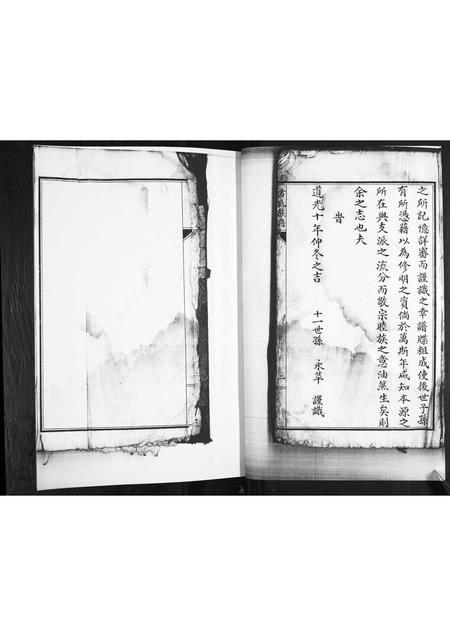 之所記憶詳審而謹識之幸譜牒祖成使後世子孫
有所憑藉以為修明之資倘於萬斯年咸知本源之
所在與支派之流分而敬宗睦族之意油然生矣則
余之志也夫
旹
道光十年仲冬之吉 十一世孫 永 謹識